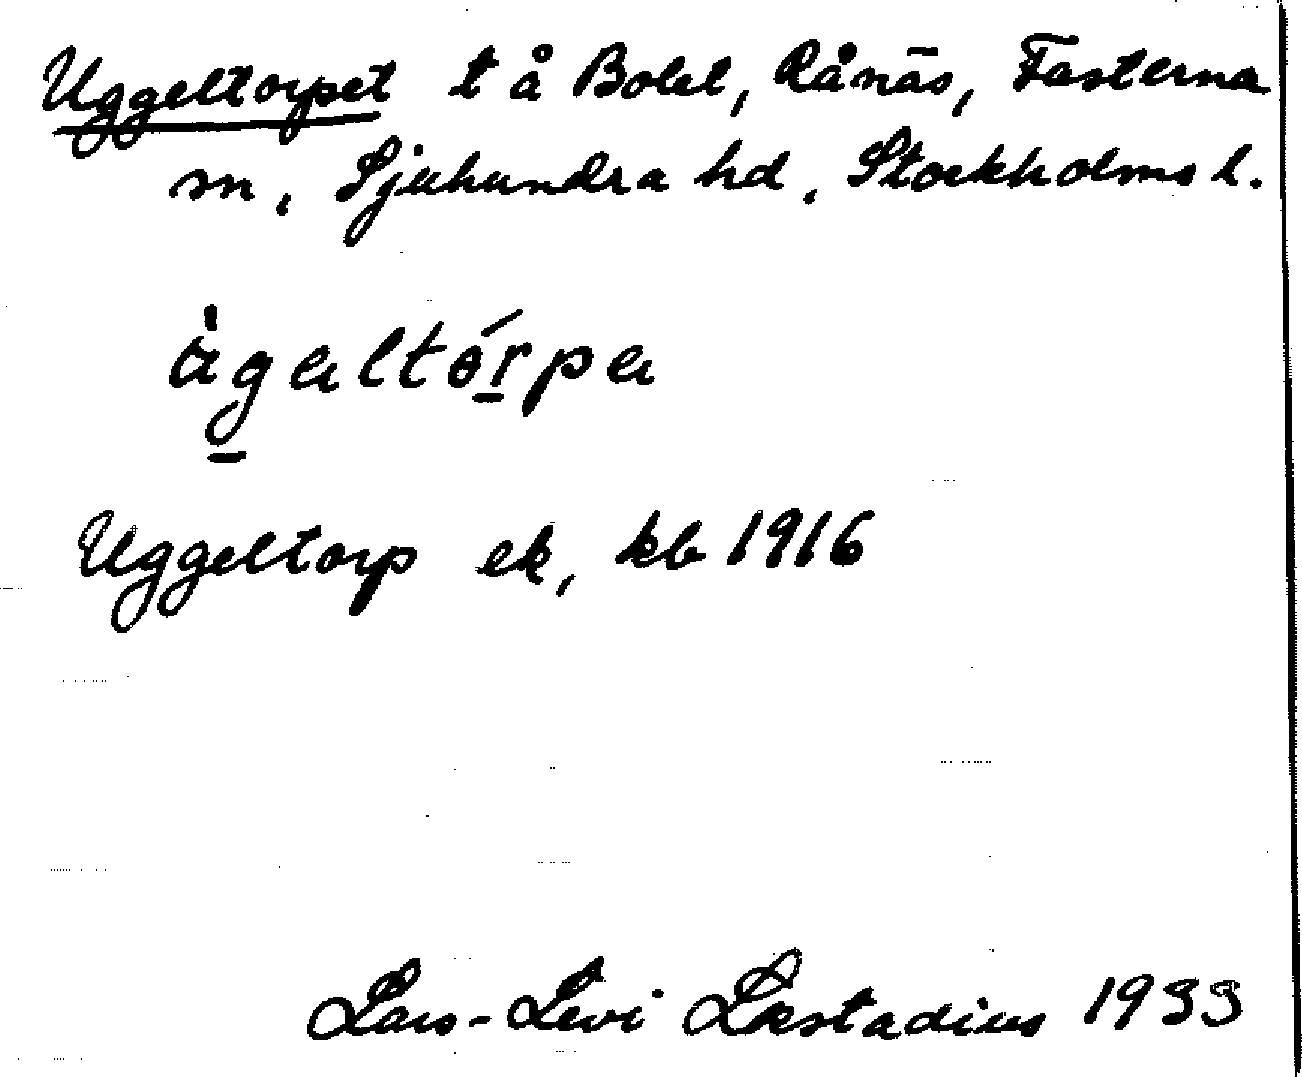 Uggeltorpet t å Bolet, Rånäs, Fasterna
sn, Sjuhundra hd, Stockholms l.
ùgaltórpa
Uggeltorp ek, kb 1916
Lars-Levi Læstadius 1933